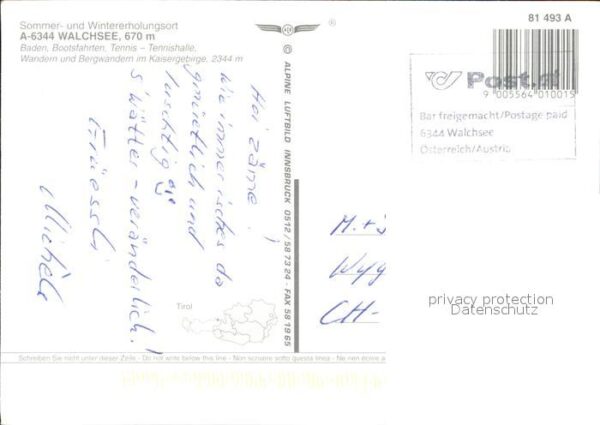 Sommer- und Wintererholungsort
A-6344 WALCHSEE, 670 m
Baden, Bootsfahrten, Tennis - Tennishalle,
Wandern und Bergwandern im Kaisergebirge, 2344 m
Hoi zäme!
Wie immer isches da
gmüetlich und
luschtig
s'wätter - veränderlich!
Grüessli
Michèle
®
© ALPINE LUFTBILD INNSBRUCK 0512/58 73 24 - FAX 58 19 65
81 493 A
9 005564 010015
Post.at
Bar freigemacht/Postage paid
6344 Walchsee
Österreich/Austria
M. +
CH-
privacy protection
Datenschutz
Tirol
Schreiben Sie nicht unter dieser Zeile - Do not write below this line - Non scrivere sotto questa linea - Ne rien écrire a